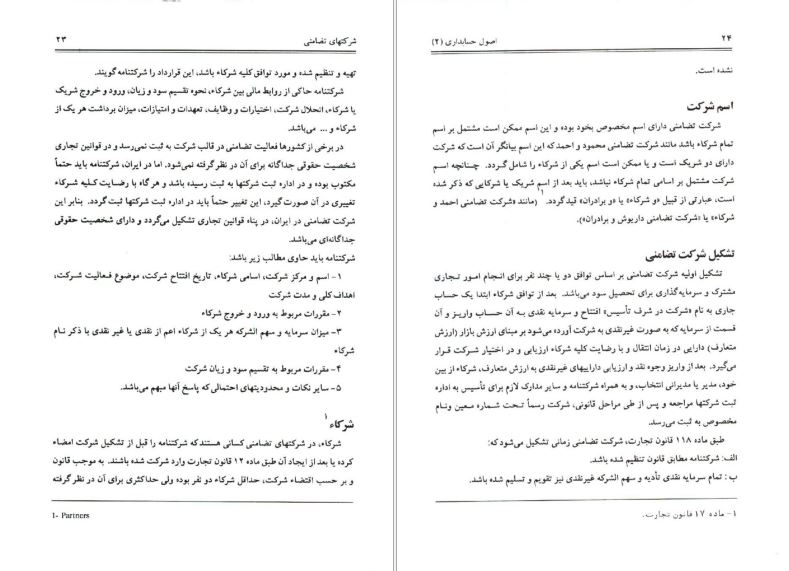 شرکتهای تضامنی ۲۳
تهیه و تنظیم شده و مورد توافق کلیه شرکاء باشد، این قرارداد را شرکتنامه گویند.
شرکتنامه حاکی از روابط مالی بین شرکاء، نحوه تقسیم سود و زیان، ورود و خروج شریک
یا شرکاء، انحلال شرکت، اختیارات و وظایف، تعهدات و امتیازات، میزان برداشت هر یک از
شرکاء و ... می‌باشد.
در برخی از کشورها فعالیت تضامنی در قالب شرکت به ثبت نمی‌رسد و در قوانین تجاری
شخصیت حقوقی جداگانه برای آن در نظر گرفته نمی‌شود. اما در ایران، شرکتنامه باید حتماً
مکتوب بوده و در اداره ثبت شرکتها به ثبت رسیده باشد و هر گاه با رضایت کلیه شرکاء
تغییری در آن صورت گیرد، این تغییر حتماً باید در اداره ثبت شرکتها ثبت گردد. بنابر این
شرکت تضامنی در ایران، در پناه قوانین تجاری تشکیل می‌گردد و دارای شخصیت حقوقی
جداگانه‌ای می‌باشد.
شرکتنامه باید حاوی مطالب زیر باشد:
۱- اسم و مرکز شرکت، اسامی شرکاء، تاریخ افتتاح شرکت، موضوع فعالیت شرکت،
اهداف کلی و مدت شرکت
۲- مقررات مربوط به ورود و خروج شرکاء
۳- میزان سرمایه و سهم الشرکه هر یک از شرکاء اعم از نقدی یا غیر نقدی با ذکر نام
شرکاء
۴- مقررات مربوط به تقسیم سود و زیان شرکت
۵- سایر نکات و محدودیتهای احتمالی که پاسخ آنها مبهم می‌باشد.
شرکاء ۱
شرکاء، در شرکتهای تضامنی کسانی هستند که شرکتنامه را قبل از تشکیل شرکت امضاء
کرده یا بعد از ایجاد آن طبق ماده ۱۲ قانون تجارت وارد شرکت شده باشند. به موجب قانون
و بر حسب اقتضاء شرکت، حداقل شرکاء دو نفر بوده ولی حداکثری برای آن در نظر گرفته
1- Partners
۲۴ اصول حسابداری (۲)
نشده است.
اسم شرکت
شرکت تضامنی دارای اسم مخصوص بخود بوده و این اسم ممکن است مشتمل بر اسم
تمام شرکاء باشد مانند شرکت تضامنی محمود و احمد که این اسم بیانگر آن است که شرکت
دارای دو شریک است و یا ممکن است اسم یکی از شرکاء را شامل گردد. چنانچه اسم
شرکت مشتمل بر اسامی تمام شرکاء نباشد، باید بعد از اسم شریک یا شرکایی که ذکر شده
است، عبارتی از قبیل «و شرکاء» یا «و برادران» قید گردد. ۱ (مانند «شرکت تضامنی احمد و
شرکاء» یا «شرکت تضامنی داریوش و برادران»).
تشکیل شرکت تضامنی
تشکیل اولیه شرکت تضامنی بر اساس توافق دو یا چند نفر برای انجام امور تجاری
مشترک و سرمایه‌گذاری برای تحصیل سود می‌باشد. بعد از توافق شرکاء ابتدا یک حساب
جاری به نام «شرکت در شرف تأسیس» افتتاح و سرمایه نقدی به آن حساب واریز و آن
قسمت از سرمایه که به صورت غیرنقدی به شرکت آورده می‌شود بر مبنای ارزش بازار (ارزش
متعارف) دارایی در زمان انتقال و با رضایت کلیه شرکاء ارزیابی و در اختیار شرکت قرار
می‌گیرد. بعد از واریز وجوه نقد و ارزیابی داراییهای غیرنقدی به ارزش متعارف، شرکاء از بین
خود، مدیر یا مدیرانی انتخاب، و به همراه شرکتنامه و سایر مدارک لازم برای تأسیس به اداره
ثبت شرکتها مراجعه و پس از طی مراحل قانونی، شرکت رسماً تحت شماره معین ونام
مخصوص به ثبت می‌رسد.
طبق ماده ۱۱۸ قانون تجارت، شرکت تضامنی زمانی تشکیل می‌شود که:
الف: شرکتنامه مطابق قانون تنظیم شده باشد.
ب : تمام سرمایه نقدی تأدیه و سهم الشرکه غیرنقدی نیز تقویم و تسلیم شده باشد.
۱- ماده ۱۷ قانون تجارت.